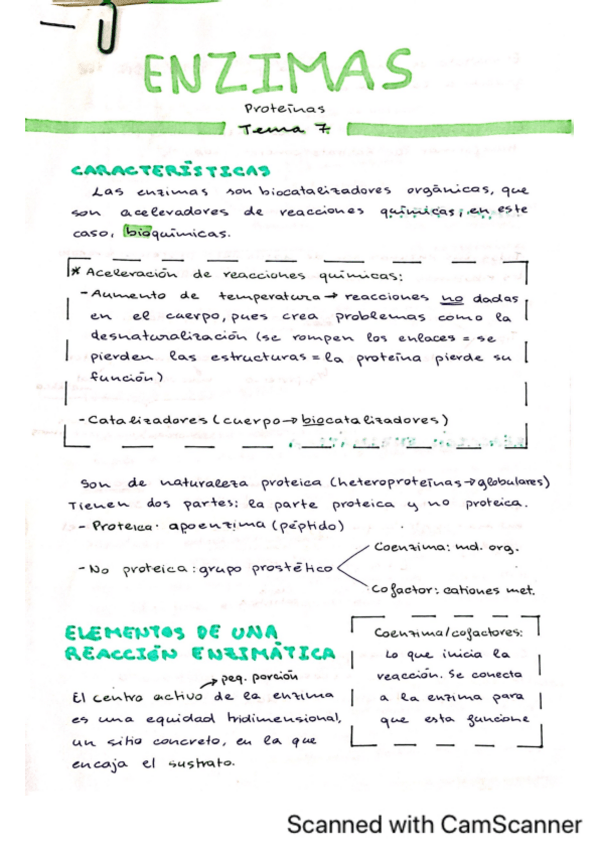 ENZIMAS
Proteínas
Tema 7
CARACTERÍSTICAS
Las enzimas son biocatalizadores orgánicos, que
son acelevadores de reacciones químicas, en este
caso, bioquímicas.
* Aceleración de reacciones químicas:
- Aumento de temperatura → reacciones no dadas
en el cuerpo, pues crea problemas como la
desnaturalización (se rompen los enlaces = se
pierden las estructuras = la proteína pierde su
función)
- Catalizadores (cuerpo → biocatalizadores)
Son de naturaleza proteica (heteroproteínas → globulares)
Tienen dos partes: la parte proteica y no proteica.
- Proteica: apoenzima (péptido)
Coenzima: mol. org.
- No proteica: grupo prostético
Cofactor: cationes met.
ELEMENTOS DE UNA
REACCIÓN ENZIMÁTICA
→ peq. porción
El centro activo de la enzima
es una equidad tridimensional,
un sitio concreto, en la que
encaja el sustrato.
Coenzima/cofactores:
Lo que inicia la
reacción. Se conecta
a la enzima para
que esta funcione
Scanned with CamScanner